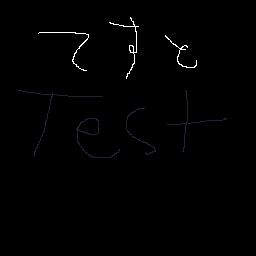 てすと
Test